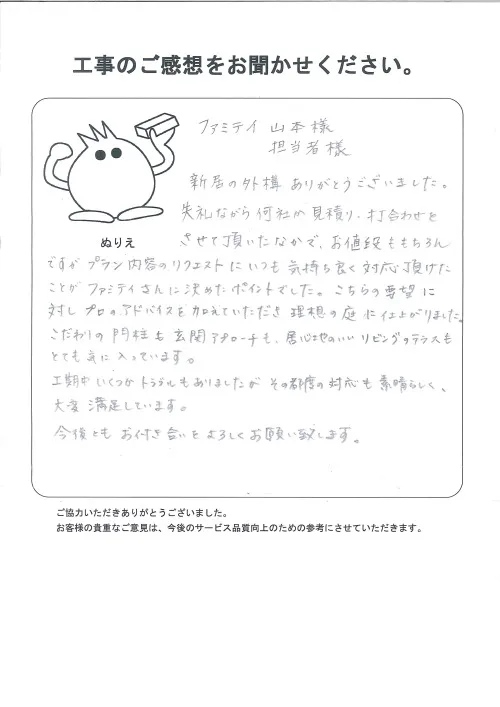 工事のご感想をお聞かせください。
ファミテイ 山本様
担当者様
新居の外構 ありがとうございました。
失礼ながら何社か見積り・打合わせを
ぬりえ
させて頂いたなかで、お値段ももちろん
ですが プラン内容のリクエストにいつも気持ち良く対応頂けた
ことが ファミテイさんに決めたポイントでした。こちらの要望に
対し プロのアドバイスを加えていただき 理想の庭に仕上がりました。
こだわりの門柱も玄関アプローチも、居心地のいいリビングのテラスも
とても気に入っています。
工期中 いくつかトラブルもありましたが その都度の対応も素晴らしく、
大変満足しています。
今後とも お付き合いをよろしくお願い致します。
ご協力いただきありがとうございました。
お客様の貴重なご意見は、今後のサービス品質向上のための参考にさせていただきます。